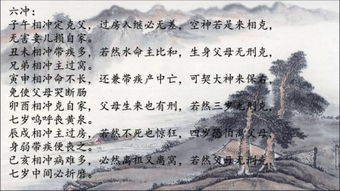 六冲：
子午相冲定克父，过房入继必无差，空神若是来相克，
无害妻儿损自家。
丑未相冲带疾多，若然水命主比和，生身父母无刑克，
兄弟相冲主过窝。
寅申相冲命不长，还兼带疾产中亡，可契大神来保右，
免使父母哭断肠
卯酉相冲克自家，父母生来也有刑，若然三岁无刑克，
七岁呜呼丧黄泉。
辰戌相冲主过房，若然不死也惊狂，四岁恐怕离父母，
身弱带疾便丧之。
已亥相冲病难多，必然离祖又离窝，若然父母无刑克，
七岁中间必折磨。